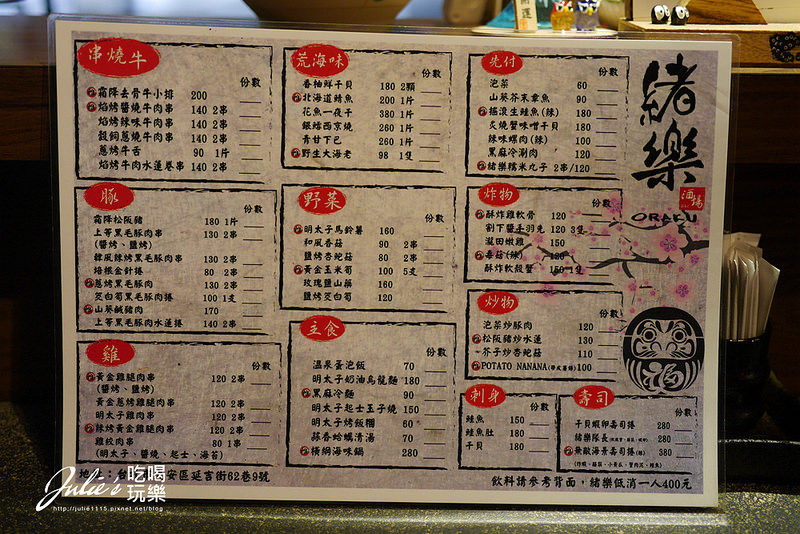 串燒牛
份數
霜降去骨牛小排 200
焰烤醬燒牛肉串 140 2串
焰烤辣味牛肉串 140 2串
穀飼蔥燒牛肉串 140 2串
蔥烤牛舌 90 1片
焰烤牛肉水蓮卷串 140 2串
豚
份數
霜降松阪豬 180 1片
上等黑毛豚肉串 130 2串
(醬烤、鹽烤)
韓風辣烤黑毛豚肉串 130 2串
培根金針捲 80 2串
蔥烤黑毛豚肉 130 2串
筊白筍黑毛豚肉捲 100 1支
山葵鹹豬肉 170
上等黑毛豚肉水蓮捲 120 2串
雞
份數
黃金雞腿肉串 120 2串
(醬烤、鹽烤)
黃金蔥烤雞腿肉串 120 2串
明太子雞肉串 120 2串
辣烤黃金雞腿肉串 120 2串
雞絞肉串 80 1串
(明太子、醬燒、起士、海苔)
荒海味
份數
香柚鮮干貝 180 2顆
北海道鯖魚 200 1片
花魚一夜干 380 1片
銀鱈西京燒 260 1片
青甘下巴 260 1片
野生大海老 98 1隻
野菜
份數
明太子馬鈴薯 160
和風香菇 90 2串
鹽烤杏鮑菇 80 2串
黃金玉米筍 100 5支
玫瑰鹽山藥 160
鹽烤筊白筍 120
主食
份數
溫泉蛋泡飯 70
明太子奶油烏龍麵 180
黑麻冷麵 90
明太子起士玉子燒 150
明太子烤飯糰 60
蒜香蛤蠣清湯 70
橫綱海味鍋 280
先付
份數
泡菜 60
山葵芥末章魚 90
搖滾生鮭魚(辣) 180
炙燒蟹味噌干貝 180
辣味螺肉(辣) 100
黑麻冷涮肉 120
緒樂糯米丸子 2串/120
炸物
份數
酥炸雞軟骨 120
割下醬手羽先 120 3隻
瀧田嫩雞 150
毒菇(辣) 120
酥炸軟殼蟹 150 1隻
炒物
份數
泡菜炒豚肉 120
松阪豬炒水蓮 130
芥子炒杏鮑菇 110
POTATO NANANA 100
刺身
份數
鮭魚 150
鮭魚肚 180
干貝 180
壽司
份數
干貝蝦卵壽司捲 280
緒樂隊長 280
無敵海景壽司捲 380
緒樂
酒場
ORAKU
福
飲料請參考背面，緒樂低消一人400元
地址：台 安區延吉街62巷9號
Julie's
吃喝
玩樂
http://julie1115.pixnet.net/blog